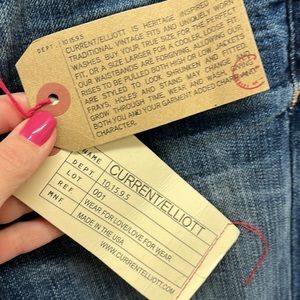 DEPT 10.15.9.5
CURRENT/ELLIOTT IS HERITAGE INSPIRED BY
TRADITIONAL VINTAGE FITS AND UNIQUELY WORN
WASHES. BUY YOUR TRUE SIZE FOR THE PERFECT
FIT, OR A SIZE LARGER FOR A COOLER, LOOSE FIT.
OUR WAISTBANDS ARE FORGIVING ALLOWING OUR
RISES TO BE PULLED BOTH HIGH OR LOW. JACKETS
ARE STYLED TO LOOK SHRUNKEN AND FITTED.
FRAYS, HOLES AND STAINS MAY WASH AND
GROW THROUGH TIME, WEAR
BOTH YOU AND YOUR GARMENT ADDED CHARM AND
CHARACTER.
NAME CURRENT/ELLIOTT
DEPT. 10.15.9.5
LOT 001
REF. WEAR FOR LOVE/LOVE FOR WEAR
MNF. MADE IN THE USA
WWW.CURRENTELLIOTT.COM